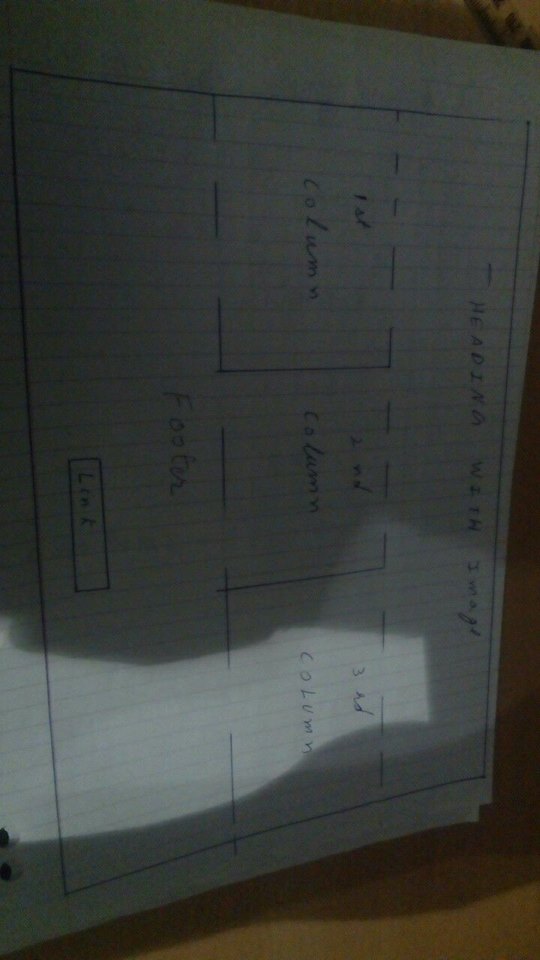 HEADING WITH Image
1st
column
2 nd
column
3 rd
column
Footer
Link